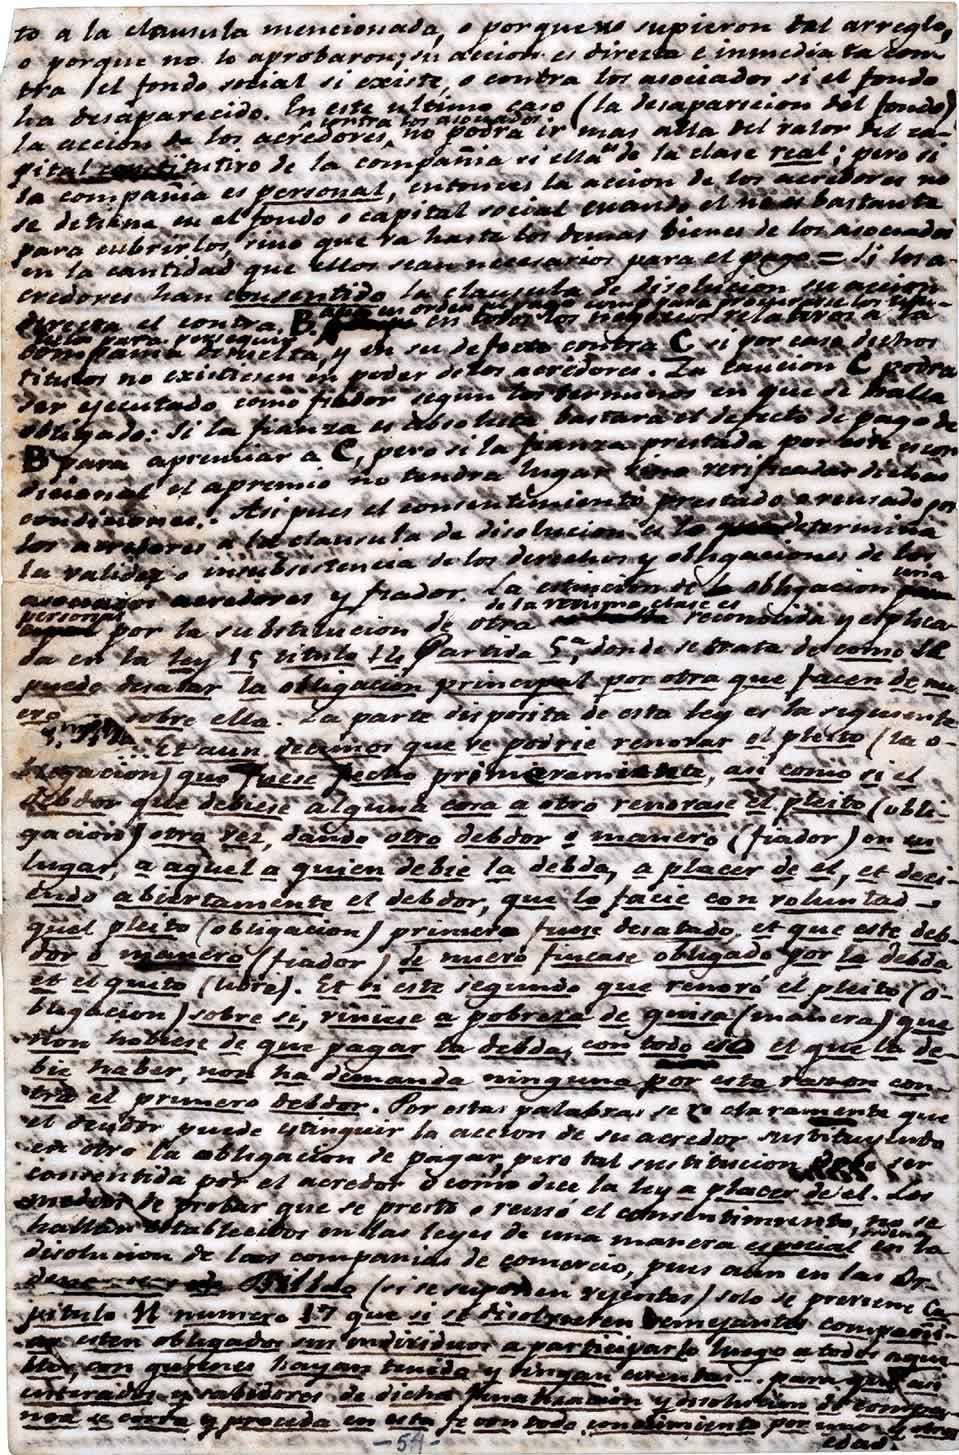 to a la clausula mencionada, o porque no supieron tal arreglo,
o porque no lo aprobaron; su accion es directa e inmediata con-
tra el fondo social si existe, o contra los asociados si el fondo
ha desaparecido. En este ultimo caso (la desaparicion del fondo)
contra los asociados
la accion de los acredores, no podra ir mas alla del valor del ca-
pital constitutivo de la compañia si ella es de la clase real; pero si
la compañia es personal, entonces la accion de los acredores no
se detiene en el fondo o capital social cuando el no es bastante
para cubrirlos, sino que va hasta los demas bienes de los asociados
en la cantidad que ellos sean necesarios para el pago = Si los a-
credores han consentido la clausula de disolucion su accion
directa es contra B. en todos los negocios relativos a la
compañia disuelta, y en su defecto contra C si por caso dichos
titulos no existiesen en poder de los acredores. La caucion C podra
ser ejecutado como fiador segun los terminos en que se halla
obligado: si la fianza es absoluta bastará el defecto de pago de
B para apremiar a C, pero si la fianza prestada por este es con-
dicional el apremio no tendra lugar sino verificadas dichas
condiciones. Asi pues el consentimiento prestado o reusado por
los acredores a la clausula de disolucion es lo que determina
la validez o insubsistencia de los derechos y obligaciones de los
asociados acredores y fiador. La estincion de la obligacion
una
personal
de la misma clase es
por la substitucion de otra reconocida y esplica-
da en la ley 15 titulo 14 Partida 5ª, donde se trata de como se
puede desatar la obligacion principal por otra que facen de nue-
vo sobre ella. La parte dispositiva de esta ley es la siguiente
Et aun decimos que se podrie renovar el pleito (la o-
bligacion) que fuese fecho primeramiente, asi como si el
debdor que debiese alguna cosa a otro renovase el pleito (obli-
gacion) otra vez, dando otro debdor o manero (fiador) en su
lugar, a aquel a quien debie la debda, a placer de el, et deci-
endo abiertamente el debdor, que lo facie con voluntad
quel pleito (obligacion) primero fuese desatado, et que este deb-
dor o manero (fiador) de nuevo fincase obligado por la debda
et el quito (libre). Et si este segundo que renovó el pleito (o-
bligacion) sobre si, viniese a pobreza de guisa (manera) que
non hobiese de que pagar la debda, con todo eso el que la de-
bie haber, non ha demanda ninguna por esta razon con-
tra el primero debdor. Por estas palabras se ve claramente que
el deudor puede estinguir la accion de su acredor sustituyendo
en otro la obligacion de pagar, pero tal sustitucion ser
consentida por el acredor o como dice la ley a placer de el. Los
medios de probar que se presto o reusó el consentimiento, no se
hallan establecidos en las leyes de una manera especial en la
disolucion de las compañias de comercio, pues aun en las Or-
denanzas de Bilbao (si se suponen vijentes) solo se previene Ca-
pitulo 11 numero 17 que si se disolvieren semejantes compañi-
as esten obligados sus individuos a participarlo luego a todos aque-
llos, con quienes hayan tenido y tengan cuentas... para que asi
enterados y sabidores de dicha finalizacion y disolucion de compa-
ñia se corra y proceda en esta fe con todo conocimiento por una y otra
- 54 -